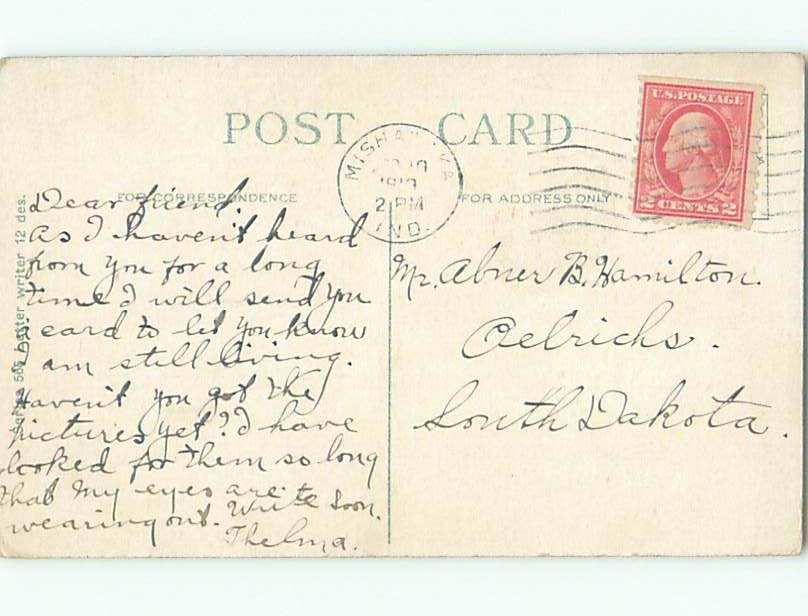 POST CARD
U.S. POSTAGE
2 CENTS 2
MISHAWAKA
19
2 PM
IND.
FOR CORRESPONDENCE
FOR ADDRESS ONLY
Series 565 Letter writer 12 des.
Dear friend,
As I haven't heard
from you for a long
time I will send you
a card to let you know
I am still living.
Haven't you got the
pictures yet? I have
looked for them so long
that my eyes are
wearing out. Write soon.
Thelma.
Mr. Abner B. Hamilton.
Oelrichs.
South Dakota.